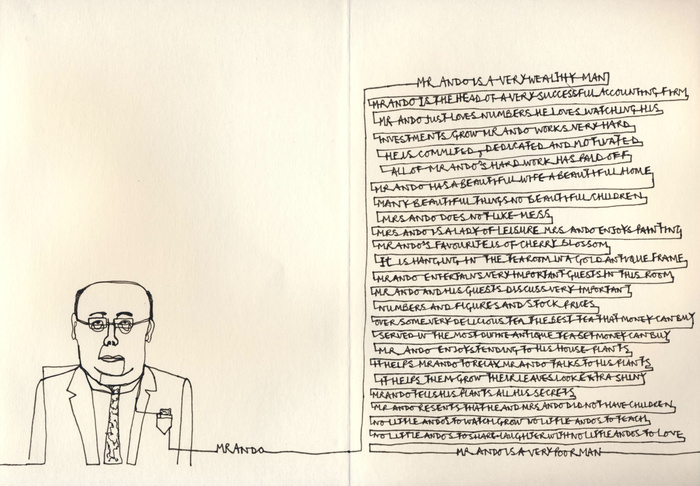 MR ANDO
MR ANDO IS A VERY WEALTHY MAN
MR ANDO IS THE HEAD OF A VERY SUCCESSFUL ACCOUNTING FIRM
MR ANDO JUST LOVES NUMBERS HE LOVES WATCHING HIS
INVESTMENTS GROW MR ANDO WORKS VERY HARD
HE IS COMMITED, DEDICATED AND MOTIVATED
ALL OF MR ANDO'S HARD WORK HAS PAID OFF
MR ANDO HAS A BEAUTIFUL WIFE A BEAUTIFUL HOME
MANY BEAUTIFUL THINGS NO BEAUTIFUL CHILDREN
MRS ANDO DOES NOT LIKE MESS
MRS ANDO IS A LADY OF LEISURE MRS ANDO ENJOYS PAINTING
MR ANDO'S FAVOURITE IS OF CHERRY BLOSSOM
IT IS HANGING IN THE TEAROOM IN A GOLD ANTIQUE FRAME
MR ANDO ENTERTAINS VERY IMPORTANT GUESTS IN THIS ROOM
MR ANDO AND HIS GUESTS DISCUSS VERY IMPORTANT
NUMBERS AND FIGURES AND STOCK PRICES
OVER SOME VERY DELICIOUS TEA THE BEST TEA THAT MONEY CAN BUY
SERVED IN THE MOST DIVINE ANTIQUE TEA SET MONEY CAN BUY
MR ANDO ENJOYS TENDING TO HIS HOUSE PLANTS
IT HELPS MR ANDO TO RELAX MR ANDO TALKS TO HIS PLANTS
IT HELPS THEM GROW THEIR LEAVES LOOK EXTRA SHINY
MR ANDO TELLS HIS PLANTS ALL HIS SECRETS
MR ANDO RESENTS THAT HE AND MRS ANDO DID NOT HAVE CHILDREN
NO LITTLE ANDOS TO WATCH GROW NO LITTLE ANDOS TO TEACH
NO LITTLE ANDOS TO SHARE LAUGHTER WITH NO LITTLE ANDOS TO LOVE
MR ANDO IS A VERY POOR MAN